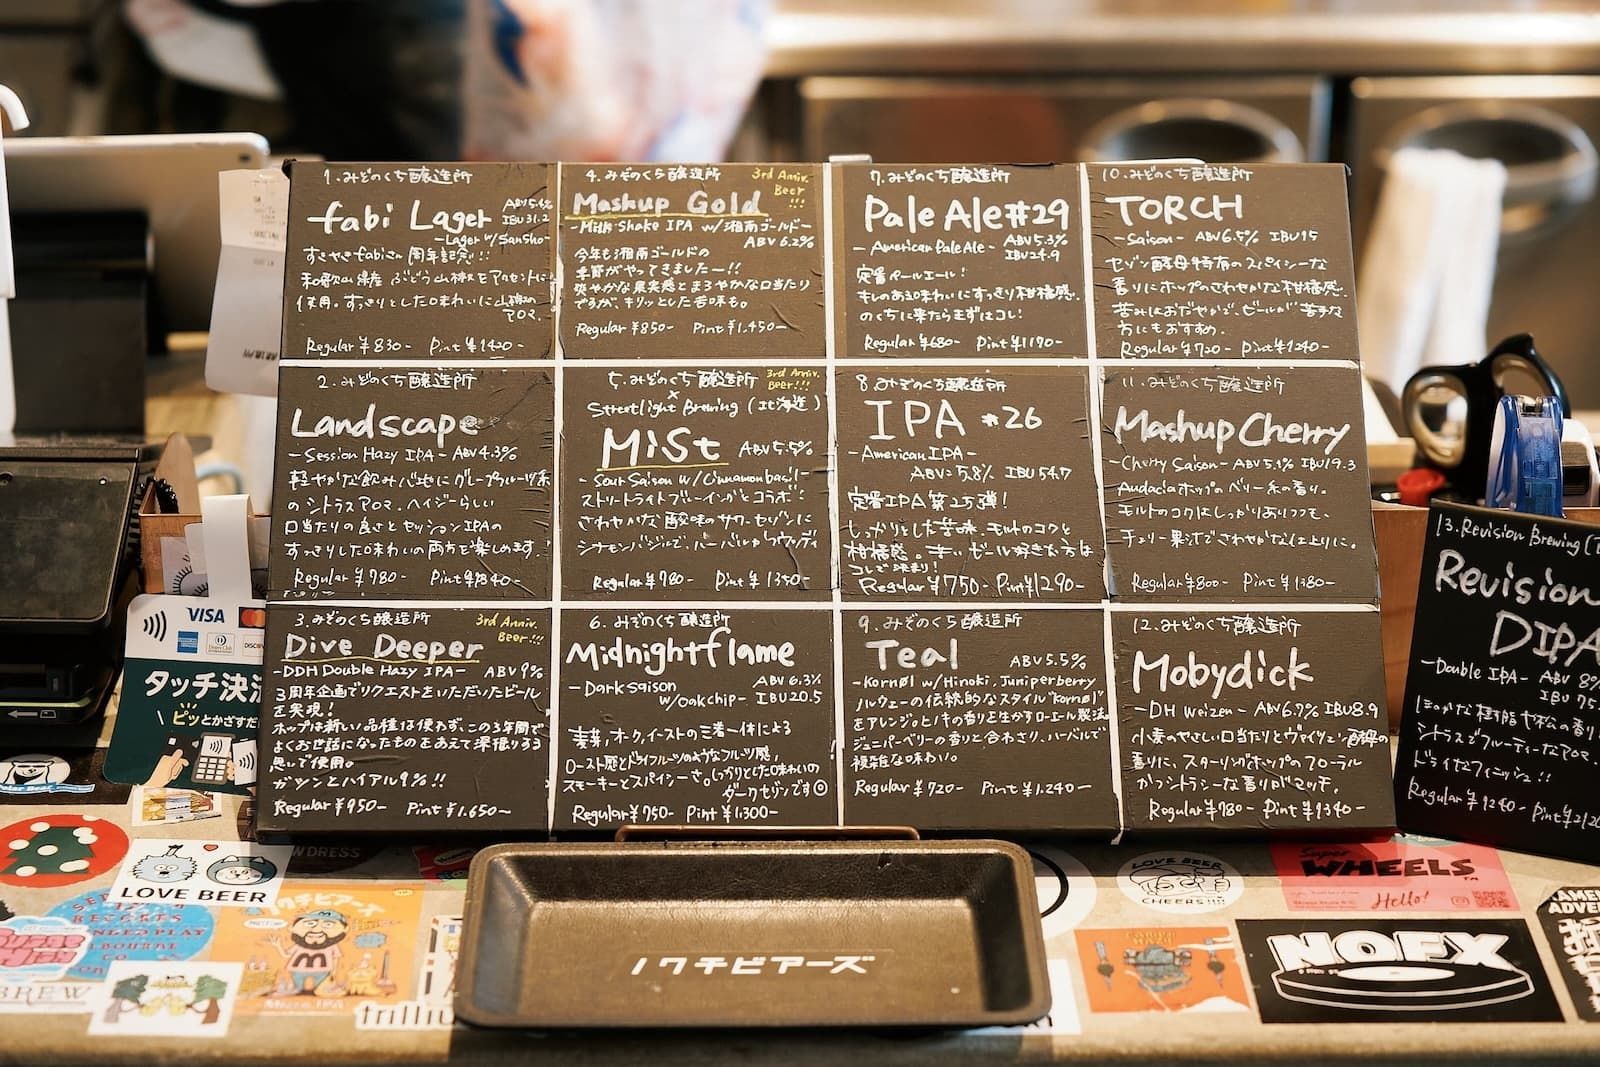 1.みぞのくち醸造所
fabi Lager
ABV5.6%
IBU31.2
-Lager w/Sansho-
すきやきfabiさん周年記念!!
和歌山県産ぶどう山椒をアクセントに
使用。すっきりとした味わいに山椒の
アロマ。
Regular ¥830- Pint ¥1420-
2.みぞのくち醸造所
Landscape
-Session Hazy IPA- ABV4.3%
軽やかな飲み心地にグレープフルーツ系
のシトラスアロマ、ヘイジーらしい
口当たりの良さとセッションIPAの
すっきりした味わいの両方を楽しめます!
Regular ¥780- Pint ¥1340-
3.みぞのくち醸造所
3rd Anniv.
Beer!!!
Dive Deeper
-DDH Double Hazy IPA- ABV9%
3周年企画でリクエストをいただいたビール
を実現!
ホップは新しい品種は使わず、この3年間で
よくお世話になったものをあえて深掘りする
思いで使用。
ガツンとハイアル9%!!
Regular ¥950- Pint ¥1.650-
4.みぞのくち醸造所
3rd Anniv.
Beer
!!!
Mashup Gold
-Milk Shake IPA w/湘南ゴールド-
ABV6.2%
今年も湘南ゴールドの
季節がやってきましたー!!
爽やかな果実感とまろやかな口当たり
ですが、キリッとした苦味も。
Regular ¥850- Pint ¥1.450-
5.みぞのくち醸造所
3rd Anniv.
Beer!!!
×
Streetlight Brewing (北海道)
MiSt
ABV5.5%
-Sour Saison w/Cinnamon basil-
ストリートライトブルーイングとコラボ!
さわやかな酸味のサワーセゾンに
シナモンバジルで、ハーバルかつウッディ
Regular ¥780- Pint ¥1350-
6.みぞのくち醸造所
Midnightflame
-Dark saison
w/oak chip-
ABV6.3%
IBU20.5
麦芽、オーク、イーストの三者一体による
ロースト感とドライフルーツのようなフルーツ感、
スモーキーとスパイシーさ。しっかりとした味わいの
ダークセゾンです
Regular ¥750- Pint ¥1.300-
7.みぞのくち醸造所
Pale Ale#29
-American Pale Ale-
ABV5.3%
IBU24.9
定番ペールエール!
キレのある味わいにすっきり柑橘感。
のくちに来たらまずはコレ!
Regular ¥680- Pint ¥1190-
8.みぞのくち醸造所
IPA #26
-American IPA-
ABV=5.8% IBU54.7
定番IPA第25弾!
しっかりとした苦味、モルトのコクと
柑橘感。辛いビール好きな方は
コレで決まり!
Regular ¥750- Pint ¥1290-
9.みぞのくち醸造所
Teal
ABV5.5%
-Kornøl w/Hinoki, Juniperberry
ノルウェーの伝統的なスタイル"kornøl"
をアレンジ。ヒノキの香りを生かすローエール製法。
ジュニパーベリーの香りと合わさり、ハーバルで
複雑な味わい。
Regular ¥720- Pint ¥1.240-
10.みぞのくち醸造所
TORCH
-Saison- ABV6.5% IBU15
セゾン酵母特有のスパイシーな
香りにホップのさわやかな柑橘感。
苦みはおだやかで、ビールが苦手な
方にもおすすめ。
Regular ¥720- Pint ¥1240-
11.みぞのくち醸造所
Mashup Cherry
-Cherry Saison- ABV5.1% IBU19.3
Audaciaホップのベリー系の香り。
モルトのコクはしっかりありつつも、
チェリー果汁でさわやかな仕上りに。
Regular ¥800- Pint ¥1380-
12.みぞのくち醸造所
Mobydick
-DH Weizen- ABV6.7% IBU8.9
小麦のやさしい口当たりとヴァイツェン酵母の
香りに、スターリングホップのフローラル
かつシトラシーな香りがマッチ。
Regular ¥780- Pint ¥1340-
13.Revision Brewing
Revision
DIPA
-Double IPA- ABV 8%
IBU 75
ほのかな樹脂や松の香り
シトラスでフルーティーなアロマ、
ドライなフィニッシュ!!
Regular ¥1240- Pint ¥2120
VISA
タッチ決済
ピッとかざすだ
LOVE BEER
ノクチビアーズ
trilliu
BREW
ノクチビアーズ
LOVE BEER
CHEERS!!!!
Super
WHEELS
Hello!
NOFX